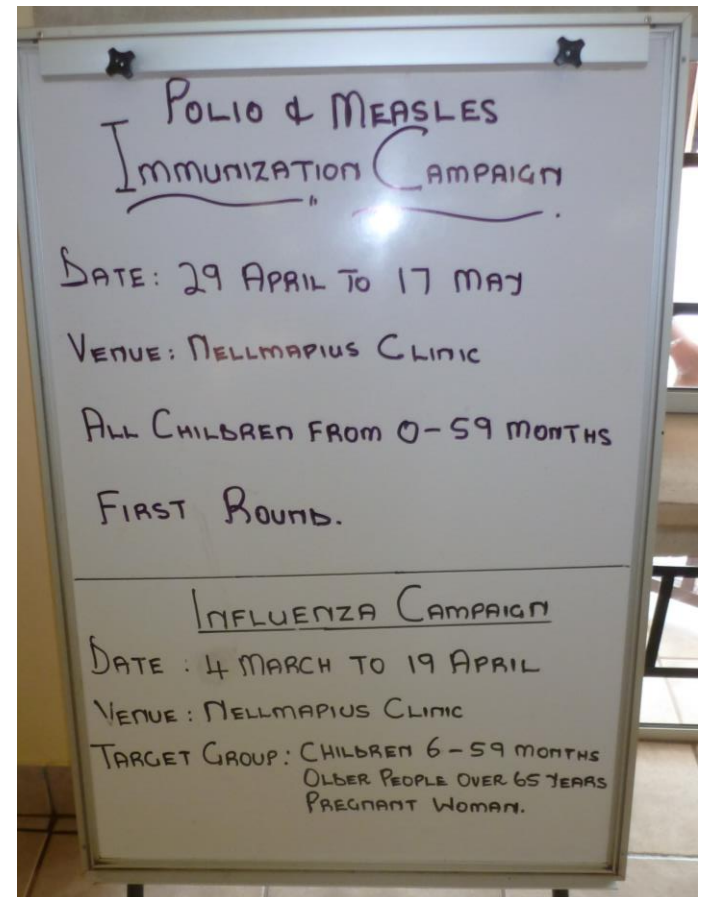 POLIO & MEASLES
IMMUNIZATION CAMPAIGN
DATE: 29 APRIL TO 17 MAY
VENUE: NELLMAPIUS CLINIC
ALL CHILDREN FROM 0-59 MONTHS
FIRST ROUND.
INFLUENZA CAMPAIGN
DATE: 4 MARCH TO 19 APRIL
VENUE: NELLMAPIUS CLINIC
TARGET GROUP: CHILDREN 6-59 MONTHS
OLDER PEOPLE OVER 65 YEARS
PREGNANT WOMAN.